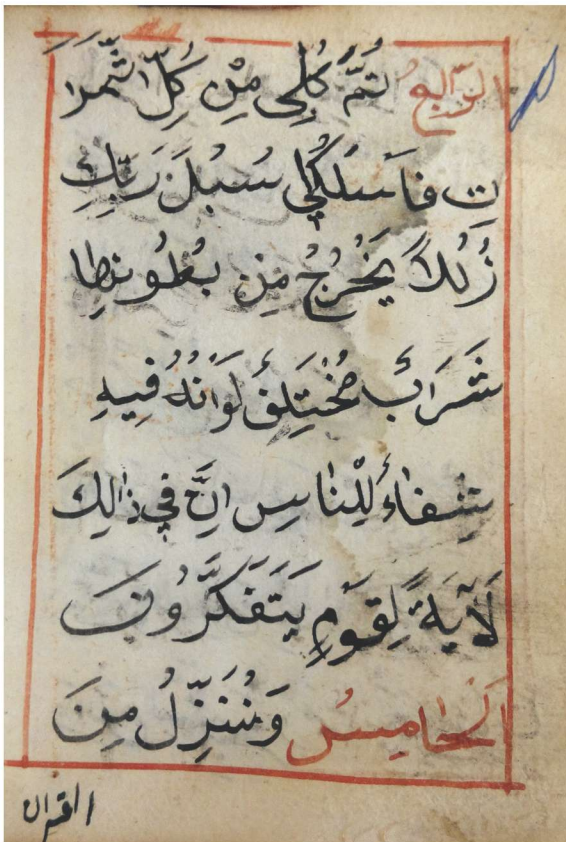 الرّابِعُ ثُمَّ كُلِى مِنْ كُلِّ الثَّمَرَا
تِ فَاسْلَكُلِي سُبُلَ رَبِّكِ
ذُلُلاً يَخْرُجُ مِن بُطُونِطِا
شَرَابٌ مُخْتَلِفٌ لَوَانُهُ فِيهِ
شِفَاءٌ لِلْنَاسِ اِنَّ فِي ذَالِكَ
لَآيَةً لِقَوْمٍ يَتَفَكَّرُونَ
اَلْخَامِسُ وَنُنَزِّلُ مِنَ
القران